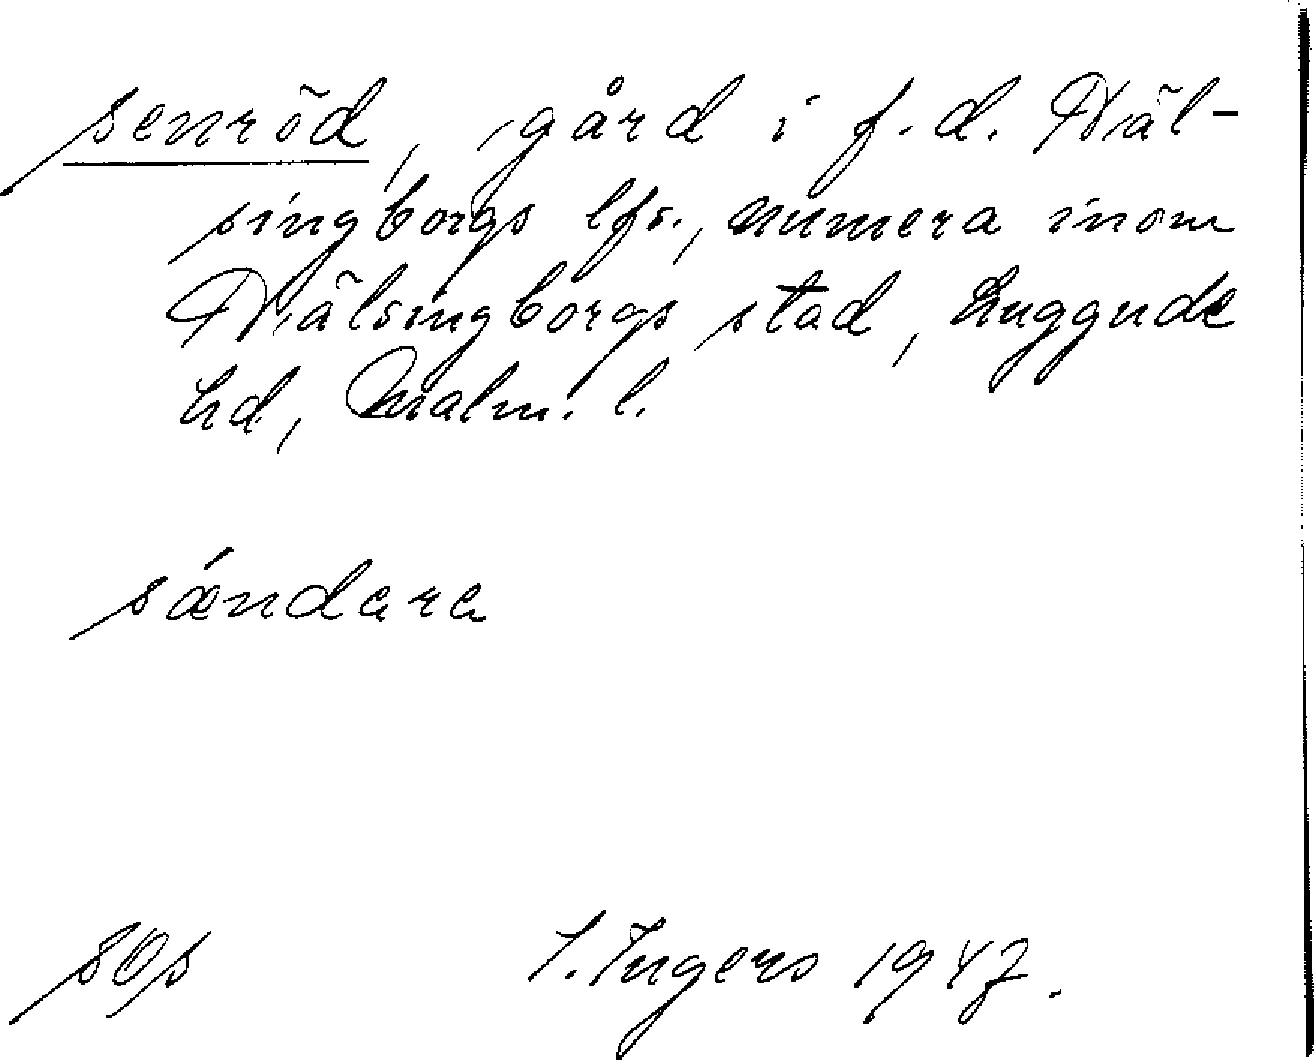 senröd, gård i f.d. Häl-
singborgs lfs., numera inom
Hälsingborgs stad, Luggude
hd, Malm. l.
sǽndara
sOs I. Ingers 1947.